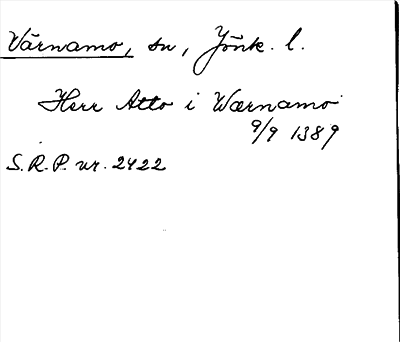 Värnamo, sn, Jönk. l.
Herr Atto i Wærnamo
9/9 1389
S.R.P. nr. 2422